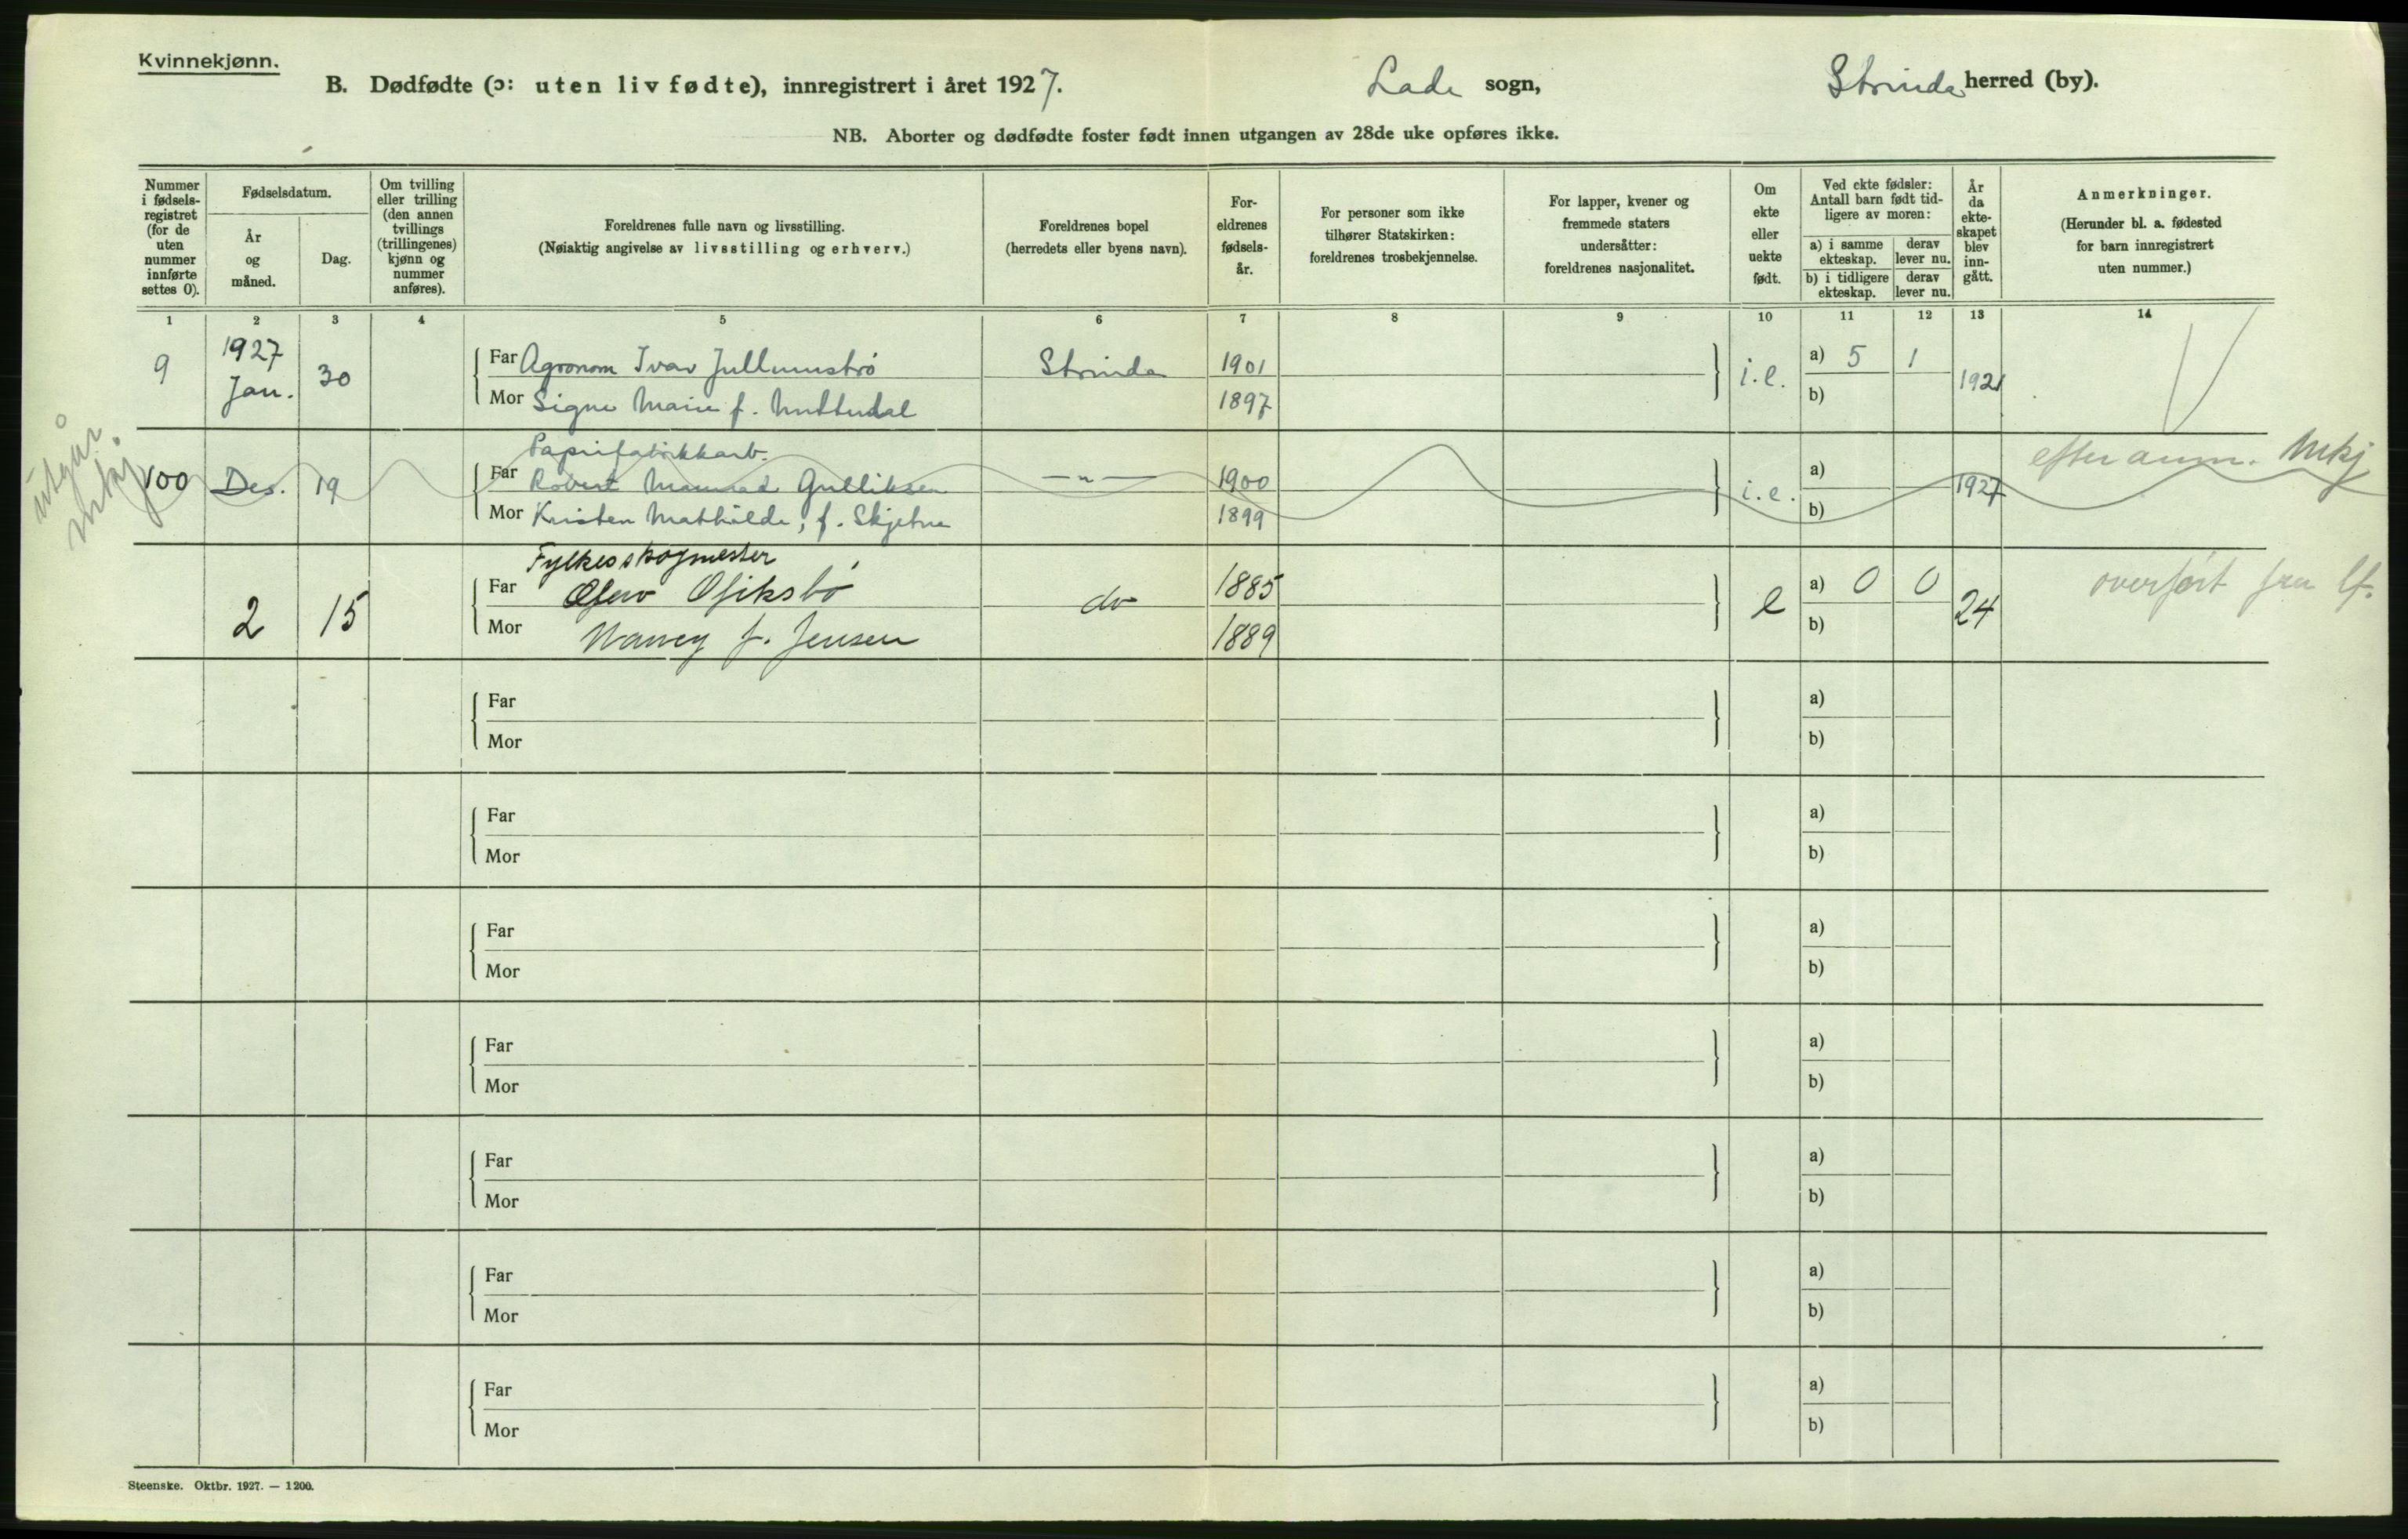 Kvinnekjønn.
B. Dødfødte (ɔ: uten liv fødte), innregistrert i året 1927. Lade sogn, Strinda herred (by).
NB. Aborter og dødfødte foster født innen utgangen av 28de uke opføres ikke.
Nummer i fødsels-registret (for de uten nummer innførte settes 0).
Fødselsdatum.
År og måned.
Dag.
Om tvilling eller trilling (den annen tvillings (trillingenes) kjønn og nummer anføres).
Foreldrenes fulle navn og livsstilling.
(Nøiaktig angivelse av livsstilling og erhverv.)
Foreldrenes bopel
(herredets eller byens navn).
For-eldrenes fødsels-år.
For personer som ikke tilhører Statskirken: foreldrenes trosbekjennelse.
For lapper, kvener og fremmede staters undersåtter: foreldrenes nasjonalitet.
Om ekte eller uekte født.
Ved ekte fødsler: Antall barn født tid-ligere av moren:
a) i samme ekteskap.
derav lever nu.
b) i tidligere ekteskap.
derav lever nu.
År da ekte-skapet blev inn-gått.
Anmerkninger.
(Herunder bl. a. fødested for barn innregistrert uten nummer.)
1 2 3 4 5 6 7 8 9 10 11 12 13 14
9 1927 Jan. 30 Far Agronom Ivar Jullumstrø Strinda 1901 i.e. a) 5 1 1921
Mor Signe Marie f. 1897 b)
utgår Mkj.
Papirfabrikkarb.
100 Des. 19 Far Robert Gulliksen —"— 1900 i.e. a) 1927 efter anm. Mkj
Mor Kristen Mathilde, f. Skjetne 1899 b)
Fylkesskogmester
2 15 Far do 1885 e a) 0 0 24 overført fra lf.
Mor Nancy f. Jensen 1889 b)
Far a)
Mor b)
Far a)
Mor b)
Far a)
Mor b)
Far a)
Mor b)
Far a)
Mor b)
Far a)
Mor b)
Far a)
Mor b)
Steenske. Oktbr. 1927. — 1200.